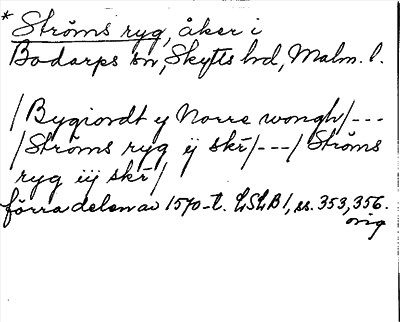 * Ströms ryg, åker i
Bodarps sn, Skytts hd, Malm. l.
/Bygiordt y Norre wongh/---
/Ströms ryg ÿ skr̄/---/Ströms
ryg iÿ skr̄/
förra delen av 1570-t. LSLB1, ss. 353, 356.
orig